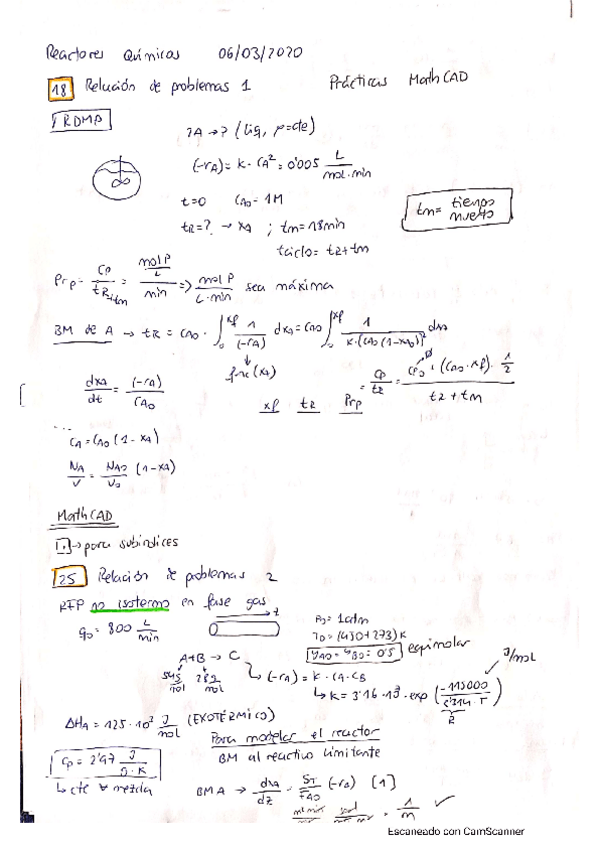 Reactores Químicos 06/03/2020
18 Relución de problemas 1 Prácticas MathCAD
TRDMA
?A → ? (liq, ρ=cte)
(-rA) = k · CA² = 0'005 L/mol·min
t=0 CA0 = 1M
tR=? → XA ; tm = 18min
tm = tiempo muerto
tciclo = tR+tm
PrP = CP/tR+tm = mol P/L / min => mol P/L·min sea máxima
BM de A → tR = CA0 · ∫₀^xf 1/(-rA) dXA = CA0 ∫₀^xf 1/k·(CA0(1-XA))² dXA
func(XA)
dXA/dt = (-rA)/CA0
xf tR PrP = CP/tR = CP0 + (CA0·xf)·1/2 / tR+tm
CA = CA0 (1-XA)
NA/V = NA0/V0 (1-XA)
MathCAD
[.] → para subíndices
25 Relación de problemas 2
RFP no isotermo en fase gas
q0 = 800 L/min
z
P0 = 1 atm
T0 = (430+273) K
yA0 = yB0 = 0'5 equimolar
A+B → C
(-rA) = k · CA · CB
J/mol
k = 3'16 · exp(-115000/8'314·T)
R
ΔHA = 125·10³ J/mol (EXOTÉRMICO)
Para modelar el reactor
BM al reactivo limitante
Cp = 2'47 J/g·K
↳ cte mezcla
BM A → dXA/dz = ST/FA0 (-rA) [1]
= 1/m ✓
Escaneado con CamScanner